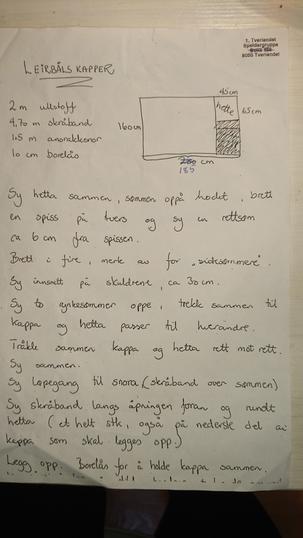 1. Tverlandet
Speidergruppe
8050 Tverlandet
LEIRBÅLSKAPPER
45cm
hette
65cm
160cm
cm
185
2 m ullstoff
4,70 m skråbånd
1,5 m anorakksnor
10 cm borelås
Sy hetta sammen, sømmen oppå hodet, brett
en spiss på tvers og sy en rettsøm
ca 6 cm fra spissen.
Brett i fire, merk av for "sidesømmene".
Sy innsatt på skuldrene, ca 30 cm.
Sy to rynkesømmer oppe, trekk sammen til
kappa og hetta passer til hverandre.
Tråkle sammen kappa og hetta rett mot rett.
Sy sammen.
Sy løpegang til snora (skråbånd over sømmen)
Sy skråbånd langs åpningen foran og rundt
hetta (et helt stk, også på nederste del av
kappa som skal legges opp.)
Legg opp. Borelås for å holde kappa sammen.